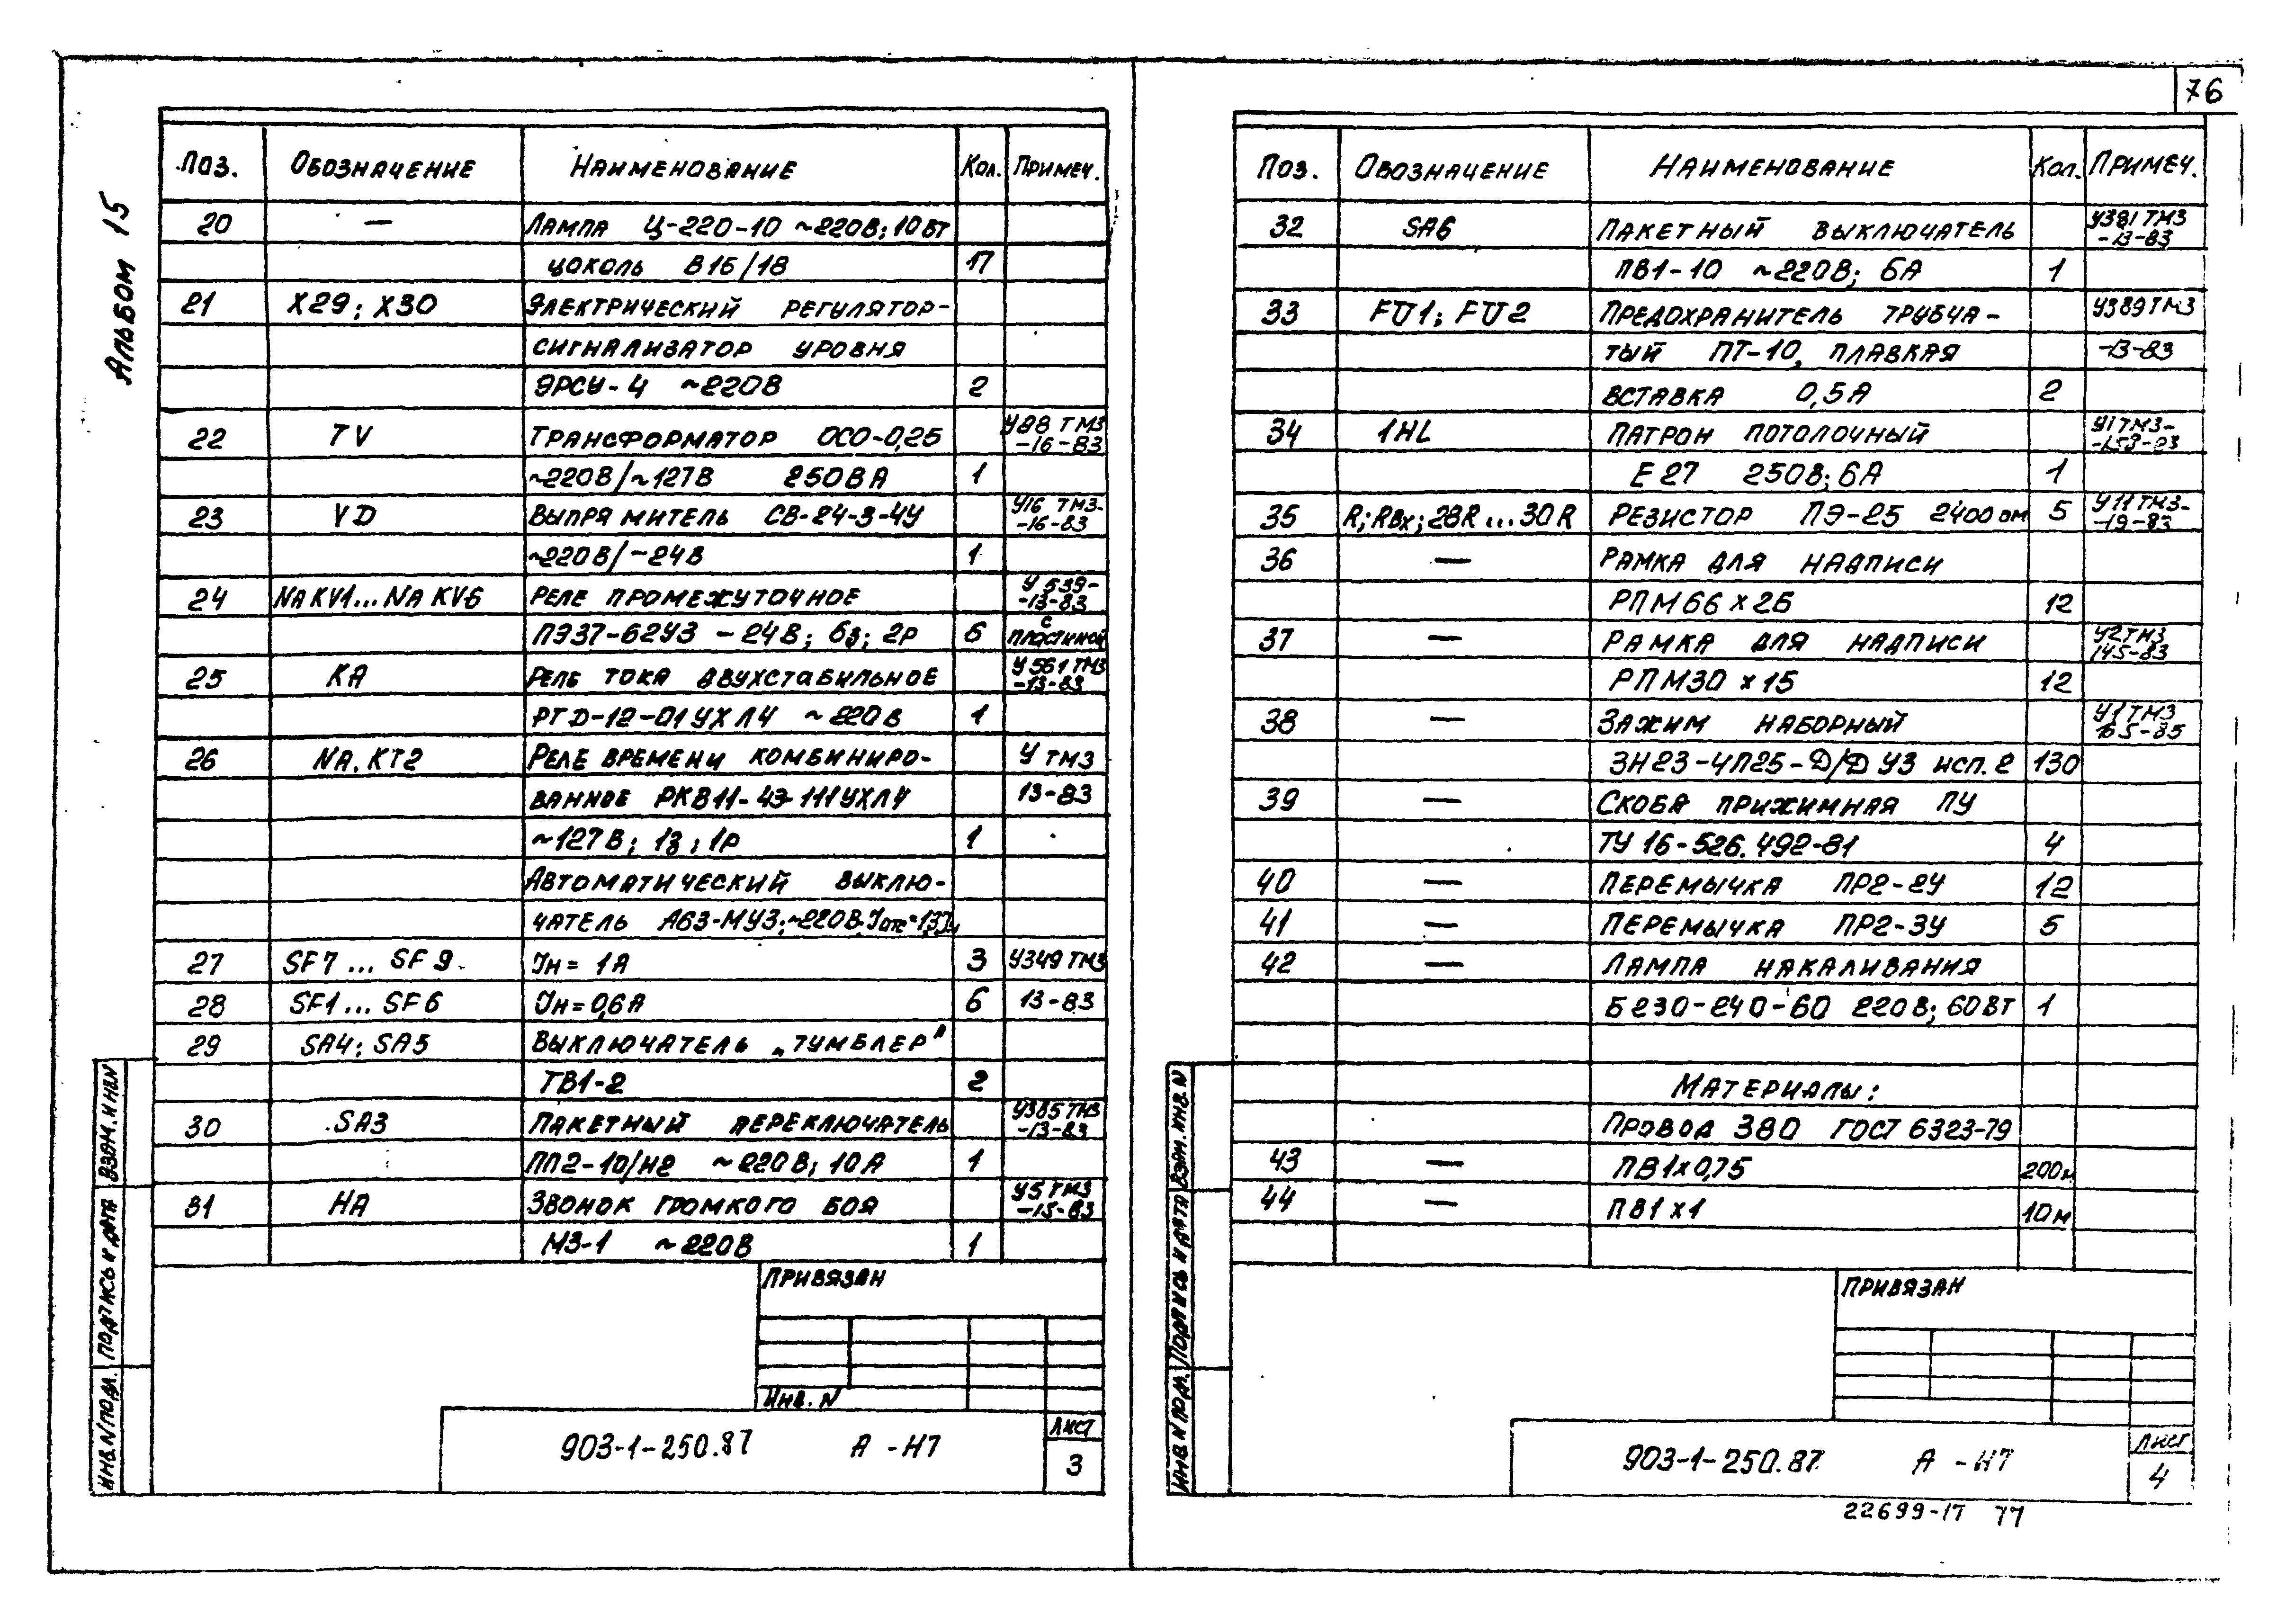 76
Альбом 15
Поз. Обозначение Наименование Кол. Примеч.
20 — Лампа Ц-220-10 ~220В; 10Вт
цоколь В15/18 17
21 Х29; Х30 Электрический регулятор-
сигнализатор уровня
ЭРСУ-4 ~220В 2
22 TV Трансформатор ОСО-0,25 У88 ТМ3
-16-83
~220В/~127В 250ВА 1
23 VD Выпрямитель СВ-24-3-4У У16 ТМ3-
-16-83
~220В/-24В 1
24 NA KV1...NA KV6 Реле промежуточное У 539-
-13-83
ПЭ37-62У3 -24В; 6з; 2р 6 с
пластиной
25 КА Реле тока двухстабильное У561 ТМ3
-13-83
РТД-12-01УХЛ4 ~220В 1
26 NA.KT2 Реле времени комбиниро- У ТМ3
ванное РКВ11-43-111УХЛ4 13-83
~127В; 1з; 1р 1
Автоматический выклю-
чатель А63-МУ3; ~220В. Jотс=1,3Jн
27 SF7 ... SF9 Jн= 1А 3 У349 ТМ3
28 SF1 ... SF6 Jн=0,6А 6 13-83
29 SA4; SA5 Выключатель „тумблер"
ТВ1-2 2
30 SA3 Пакетный переключатель У385 ТМ3
-13-83
ПП2-10/Н2 ~220В; 10А 1
31 НА Звонок громкого боя У5 ТМ3
-15-83
МЗ-1 ~220В 1
Привязан
Инв. N
903-1-250.87 А -Н7
Лист
3
Инв.N подл. Подпись и дата Взам.инв.N
Поз. Обозначение Наименование Кол. Примеч.
32 SA6 Пакетный выключатель У381 ТМ3
-13-83
ПВ1-10 ~220В; 6А 1
33 FU1; FU2 Предохранитель трубча- У389ТМ3
тый ПТ-10, плавкая -13-83
вставка 0,5А 2
34 1HL Патрон потолочный У1ТМ3-
-158-83
Е27 250В; 6А 1
35 R; Rвх; 28R...30R Резистор ПЭ-25 2400 ом 5 У11ТМ3-
-19-83
36 — Рамка для надписи
РПМ66х26 12
37 — Рамка для надписи У2ТМ3
145-83
РПМ30х15 12
38 — Зажим наборный У1ТМ3
165-85
ЗН23-4П25-Д/Д У3 исп. 2 130
39 — Скоба прижимная ПУ
ТУ 16-526.492-81 4
40 — Перемычка ПР2-2У 12
41 — Перемычка ПР2-3У 5
42 — Лампа накаливания
Б230-240-60 220В; 60Вт 1
Материалы:
Провод 380 ГОСТ 6323-79
43 — ПВ1х0,75 200м
44 — ПВ1х1 10м
Привязан
903-1-250.87 А -Н7
Лист
4
Инв.N подл. Подпись и дата Взам.инв.N
22699-17 77